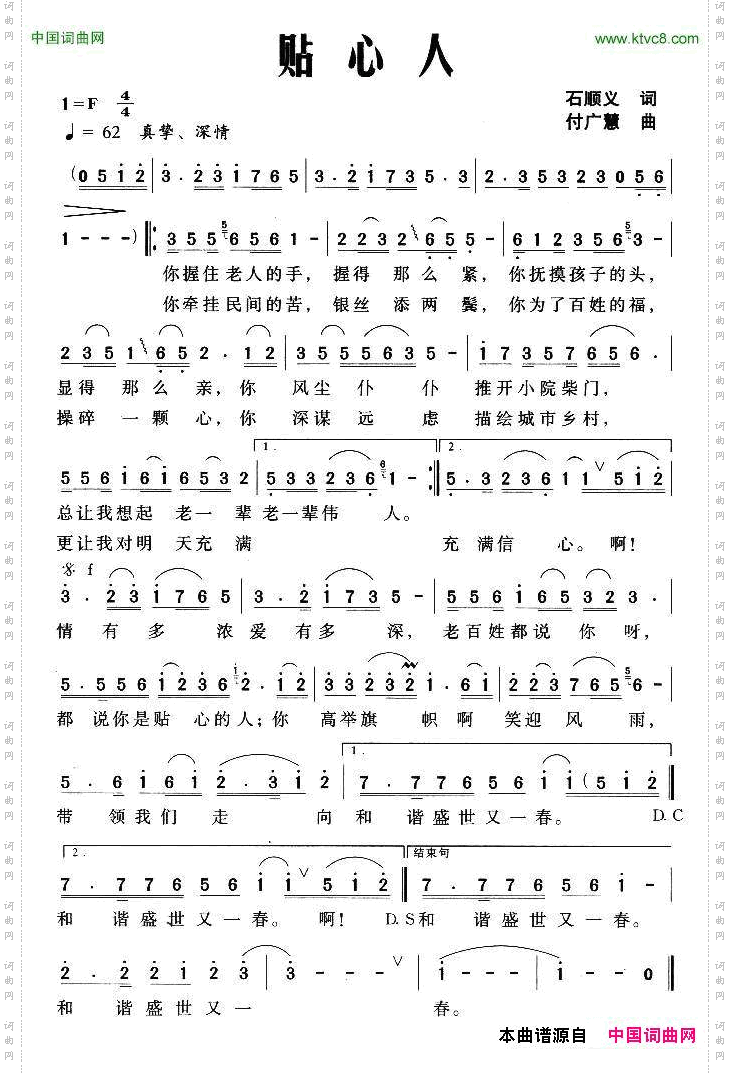 中国词曲网
www.ktvc8.com
贴心人
1=F 4/4
石顺义 词
♩= 62 真挚、深情
付广慧 曲
(0 5 1 2 3 · 2 3 1 7 6 5 3 · 2 1 7 3 5 · 3 2 · 3 5 3 2 3 0 5 6
1 - - - ) 3 5 5 6 5 6 1 - 2 2 3 2 6 5 6 1 2 3 5 6 3 -
你握住老人的手，握得 那么 紧，你抚摸孩子的头，
你牵挂民间的苦，银丝 添两 鬓，你为了百姓的福，
2 3 5 1 6 5 2 · 1 2 3 5 5 5 6 3 5 - 1 7 3 5 7 6 5 ·
显得 那么亲，你 风尘 仆 仆 推开小院柴门，
操碎 一颗心，你 深谋 远 虑 描绘城市乡村，
1. 2.
5 5 6 1 6 1 6 5 3 2 5 3 3 2 3 6 1 - 5 · 3 2 3 6 1 1 5 1 2
总让我想起 老一 辈 老一辈伟 人。
更让我对明 天充 满 充 满信 心。啊！
f
3 · 2 3 1 7 6 5 3 · 2 1 7 3 5 - 5 5 6 1 6 5 3 2 3 ·
情 有多 浓 爱 有多 深，老百姓都说 你 呀，
5 · 5 5 6 1 2 3 6 2 · 1 2 3 3 2 3 2 1 · 6 1 2 2 3 7 6 5 6 -
都 说你是贴 心的人；你 高举旗 帜啊 笑迎 风 雨，
1.
5 · 6 1 6 1 2 · 3 1 2 7 · 7 7 6 5 5 6 1 1 ( 5 1 2
带 领我们 走 向 和 谐盛世又一春。 D.C
2. 结束句
7 · 7 7 6 5 5 6 1 1 5 1 2 7 · 7 7 6 5 5 6 1 -
和 谐盛世又一春。 啊！ D.S 和 谐盛世又一春。
2 · 2 2 1 2 3 3 - - - 1 - - - 1 - - 0
和 谐盛世又一 春。
本曲谱源自 中国词曲网
词曲网